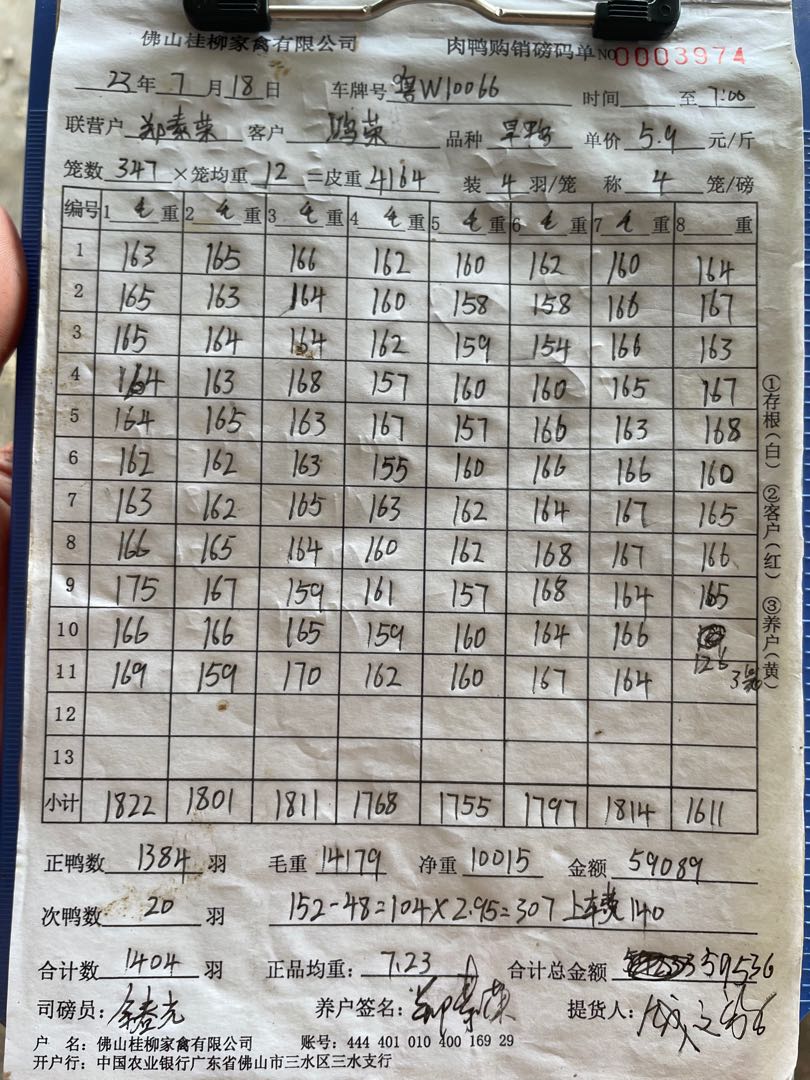 佛山桂柳家禽有限公司 肉鸭购销磅码单 NO 0003974
23 年 7 月 18 日 车牌号 粤W10066 时间 至 7:00
联营户 郑素荣 客户 鸿荣 品种 单价 5.9 元/斤
笼数 347 ×笼均重 12 =皮重 4164 装 4 羽/笼 称 4 笼/磅
编号 1 毛 重 2 毛 重 3 毛 重 4 毛 重 5 毛 重 6 毛 重 7 毛 重 8 重
1 163 165 166 162 160 162 160 164
2 165 163 164 160 158 158 166 167
3 165 164 164 162 159 154 166 163
4 164 163 168 157 160 160 165 167
5 164 165 163 167 157 166 163 168
6 162 162 163 155 160 166 166 160
7 163 162 165 163 162 164 167 165
8 166 165 164 160 162 168 167 166
9 175 167 159 161 157 168 164 165
10 166 166 165 159 160 164 166
126 3笼
11 169 159 170 162 160 167 164
12
13
小计 1822 1801 1811 1768 1755 1797 1814 1611
①存根(白) ②客户(红) ③养户(黄)
正鸭数 1384 羽 毛重 14179 净重 10015 金额 59089
次鸭数 20 羽 152-48=104×2.95=307 上车费 140
合计数 1404 羽 正品均重: 7.23 合计总金额 59536
司磅员: 养户签名: 郑素荣 提货人:
户 名: 佛山桂柳家禽有限公司 账号: 444 401 010 400 169 29
开户行: 中国农业银行广东省佛山市三水区三水支行